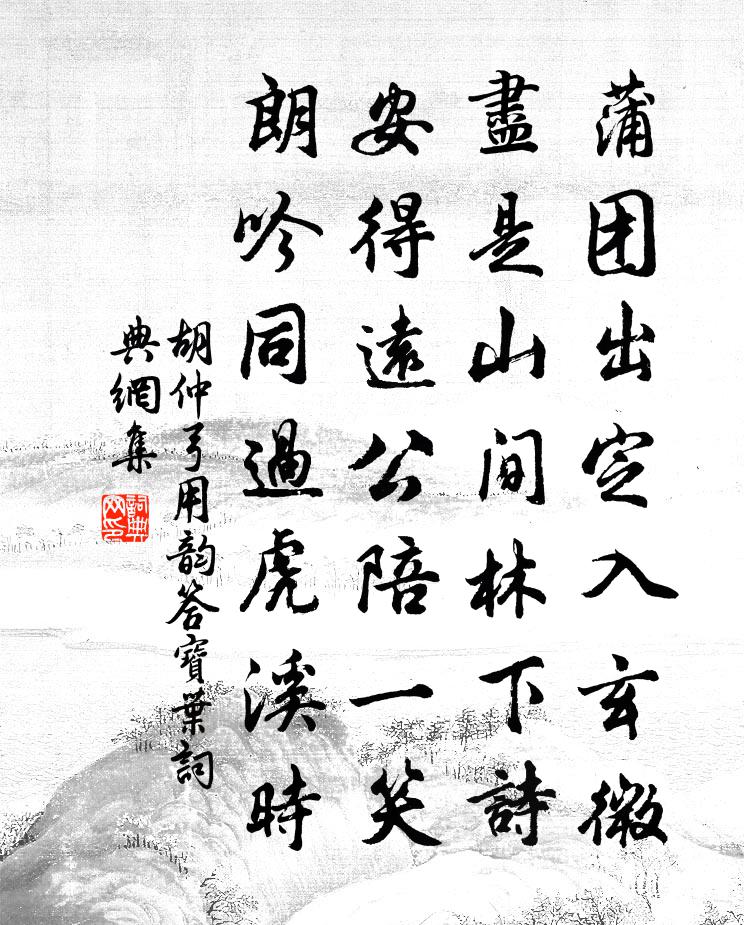 蒲团出定入玄微
盡是山间林下詩
安得遠公陪一笑
朗吟同過虎溪時
胡仲弓用韵答寶葉詞
典網集
詞典
网印